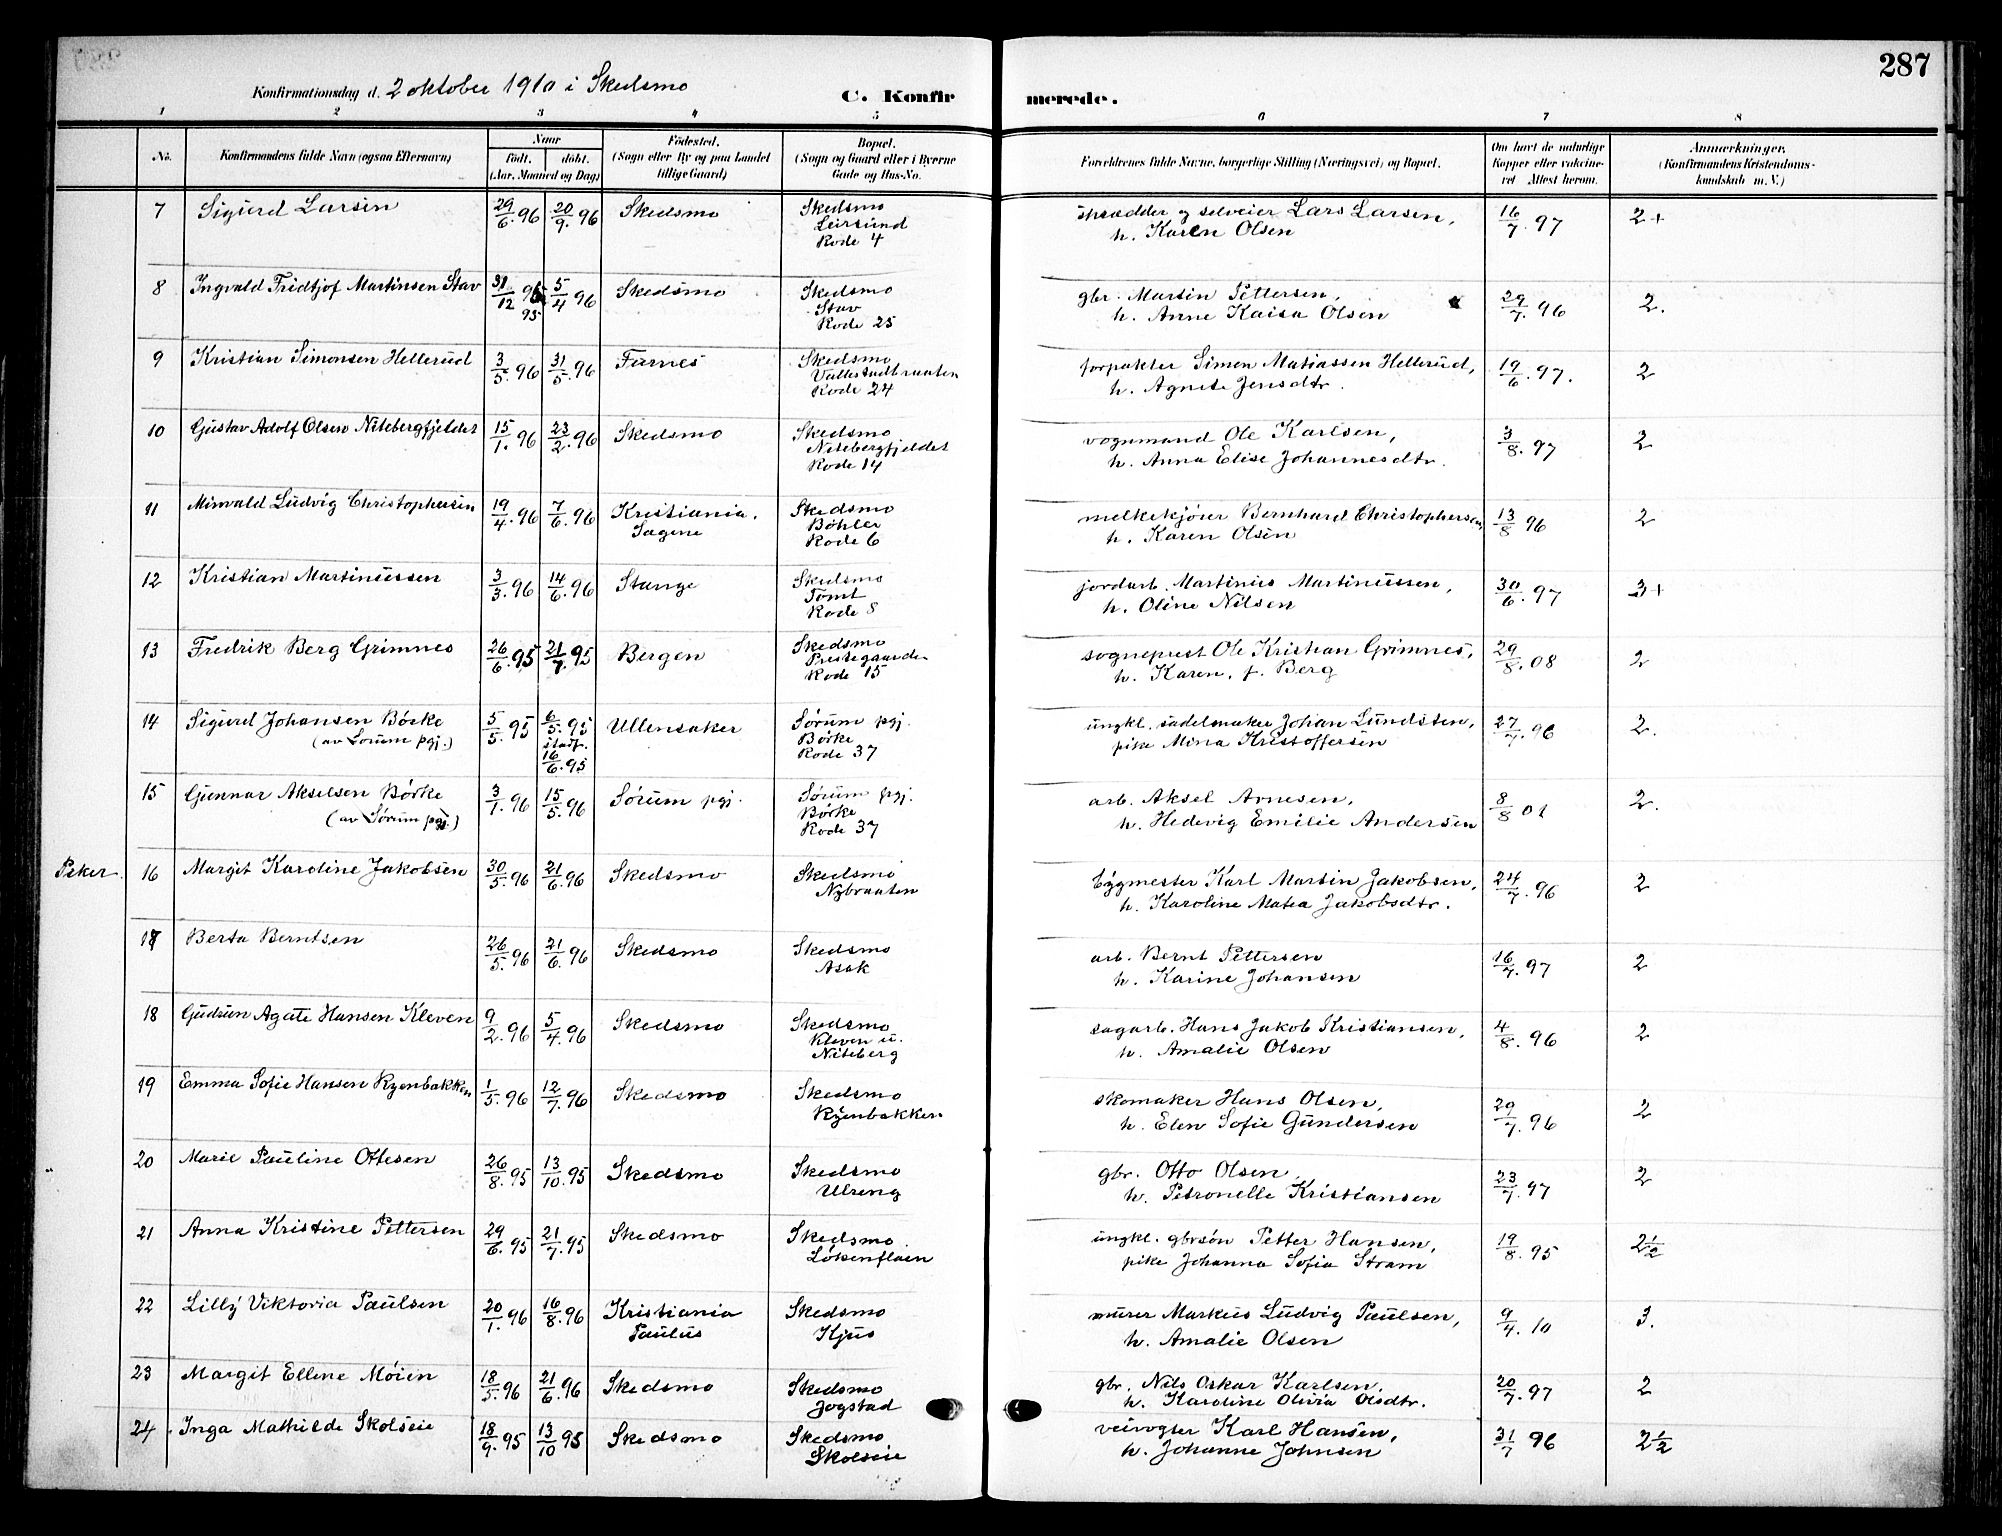 287
Konfirmationsdag d. 2 oktober 1910 i Skedsmo
C. Konfirmerede.
1 2 3 4 5 6 7 8
No.
Konfirmandens fulde Navn (ogsaa Efternavn)
Naar
født. døbt.
(Aar, Maaned og Dag)
Fødested.
(Sogn eller By og paa Landet
tillige Gaard)
Bopæl.
(Sogn og Gaard eller i Byerne
Gade og Hus-No.
Forældrenes fulde Navne, borgerlige Stilling (Næringsvei) og Bopæl.
Om havt de naturlige
Kopper eller vaccine-
ret Attest herom.
Anmærkninger.
(Konfirmandens Kristendoms-
kundskab m. V.)
7 Sigurd Larsen 29/6.96 20/9.96 Skedsmo Skedsmo
Leirsund
Rode 4
skrædder og selveier Lars Larsen,
h. Karen Olsen
16/7.97 2+
8 Ingvald Fridtjof Martinsen Stav 31/12 96 5/4 96 Skedsmo Skedsmo
95
Stav
Rode 25
gbr. Martin Pettersen,
h. Anne Kaisa Olsen
29/7.96 2.
9 Kristian Simonsen Hellerud 3/5.96 31/5.96 Furnes Skedsmo
Vallstadbraaten
Rode 24
forpakter Simen Matiassen Hellerud,
h. Agnete Jensdtr.
19/6.97. 2
10 Gustav Adolf Olsen Nitebergfjeldet 15/1.96 23/2.96 Skedsmo Skedsmo
Nitebergfjeldet
Rode 14
vognmand Ole Karlsen,
h. Anna Elise Johannesdtr.
3/8.97 2
11 Minvald Ludvig Christophersen 19/4.96 7/6.96 Kristiania. Skedsmo
Sagene Böhler
Rode 6
melkekjører Bernhard Christophersen,
h. Karen Olsen
13/8 96 2
12 Kristian Martinussen 3/3.96 14/6.96 Stange Skedsmo
Tomt
Rode 8
jordarb. Martinus Martinussen,
h. Oline Nilsen
30/6.97 3+
13 Fredrik Berg Grimnes 26/6.95 21/7.95 Bergen Skedsmo
Prestegaarden
Rode 15
sogneprest Ole Kristian Grimnes,
h. Karen, f. Berg
29/8.08 2
14 Sigurd Johansen Börke 5/5.95 6/5.95 Ullensaker Sørum pgj.
(av Sørum pgj.) stadf. Börke
16/6.95 Rode 37
ungkl. sadelmaker Johan Lundsten,
pike Mina Kristoffersen
27/7.96 2.
15 Gunnar Akselsen Börke 3/1.96 15/5.96 Sørum pgj. Sørum pgj.
(av Sørum pgj.) Börke
Rode 37
arb. Aksel Arnesen,
h. Hedevig Emilie Andersen
8/8 01 2.
Piker. 16 Margit Karoline Jakobsen 30/5.96 21/6.96 Skedsmo Skedsmo
Nybraaten
bygmester Karl Martin Jakobsen,
h. Karoline Matea Jakobsdtr.
24/7.96 2
17 Berta Berntsen 26/5.96 21/6.96 Skedsmo Skedsmo
Asak
arb. Bernt Pettersen
h. Karine Johansen
16/7.97 2
18 Gudrun Agate Hansen Kleven 9/2.96 5/4.96 Skedsmo Skedsmo
Kleven u.
Niteberg
sagarb. Hans Jakob Kristiansen,
h. Amalie Olsen
4/8.96 2
19 Emma Sofie Hansen Ryenbakken 1/5.96 12/7.96 Skedsmo Skedsmo
Ryenbakken
skomaker Hans Olsen,
h. Elen Sofie Gundersen
29/7.96 2
20 Marie Pauline Ottesen 26/8.95 13/10.95 Skedsmo Skedsmo
Ulreng
gbr. Otto Olsen,
h. Petronelle Kristiansen
23/7.97 2
21 Anna Kristine Pettersen 29/6.95 21/7.95 Skedsmo Skedsmo
Løkenflaen
ungkl. gbrsøn Petter Hansen,
pike Johanna Sofia Strøm
19/8.95 2½
22 Lilly Viktoria Paulsen 20/1.96 16/8.96 Kristiania Skedsmo
Paulus Kjus
murer Markus Ludvig Paulsen,
h. Amalie Olsen
9/4.10 3.
23 Margit Ellene Moien 18/5.96 21/6.96 Skedsmo Skedsmo
Jogstad
gbr. Nils Oskar Karlsen,
h. Karoline Olivia Olsdtr.
20/7.97 2
24 Inga Mathilde Skolseie 18/9.95 13/10 95 Skedsmo Skedsmo
Skolseie
veivogter Karl Hansen,
h. Johanne Johnsen
31/7 96 2½